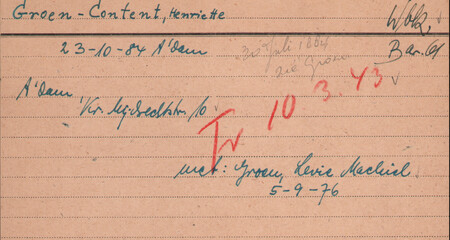 Groen-Content, Henriette
Wolk,
23-10-84 A'dam
30 Juli 1884
zie Groen
Bar. 61
A'dam
Kr. Mijdrechtstr. 10
Tr 10 3 43
met: Groen, Levie Machiel
5-9-76